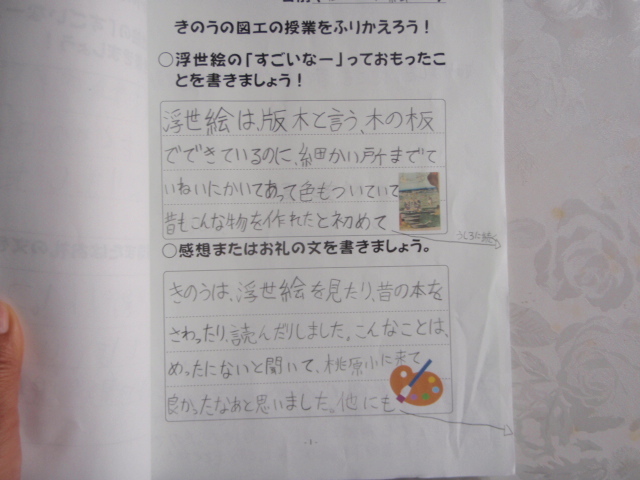 きのうの図工の授業をふりかえろう！
○浮世絵の「すごいなー」っておもったこ
とを書きましょう！
浮世絵は、版木と言う、木の板
でできているのに、細かい所までて
いねいにかいてあって色もついていて
昔もこんな物を作れたと初めて
うしろに続く
○感想またはお礼の文を書きましょう。
きのうは、浮世絵を見たり、昔の本を
さわったり、読んだりしました。こんなことは、
めったにないと聞いて、桃原小に来て
良かったなあと思いました。他にも
-1-